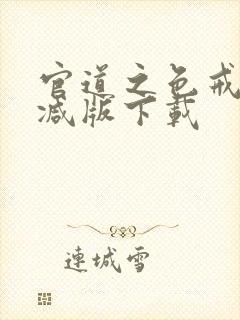 官道之色戒
减版下載
連城雪